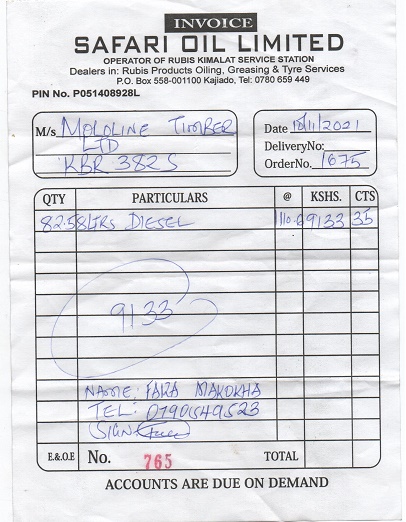 INVOICE
SAFARI OIL LIMITED
OPERATOR OF RUBIS KIMALAT SERVICE STATION
Dealers in: Rubis Products Oiling, Greasing & Tyre Services
P.O. Box 558-001100 Kajiado, Tel: 0780 659 449
PIN No. P051408928L
M/s MOLOLINE TIMBER
LTD
KBR 382 S
Date 18/11/2021
DeliveryNo:
OrderNo. 1675
QTY PARTICULARS @ KSHS. CTS
82.58 LTRS DIESEL 110.6 9133 35
9133
NAME: FARA MAKOKHA
TEL: 0790549523
SIGN
E.&O.E No. 765 TOTAL
ACCOUNTS ARE DUE ON DEMAND